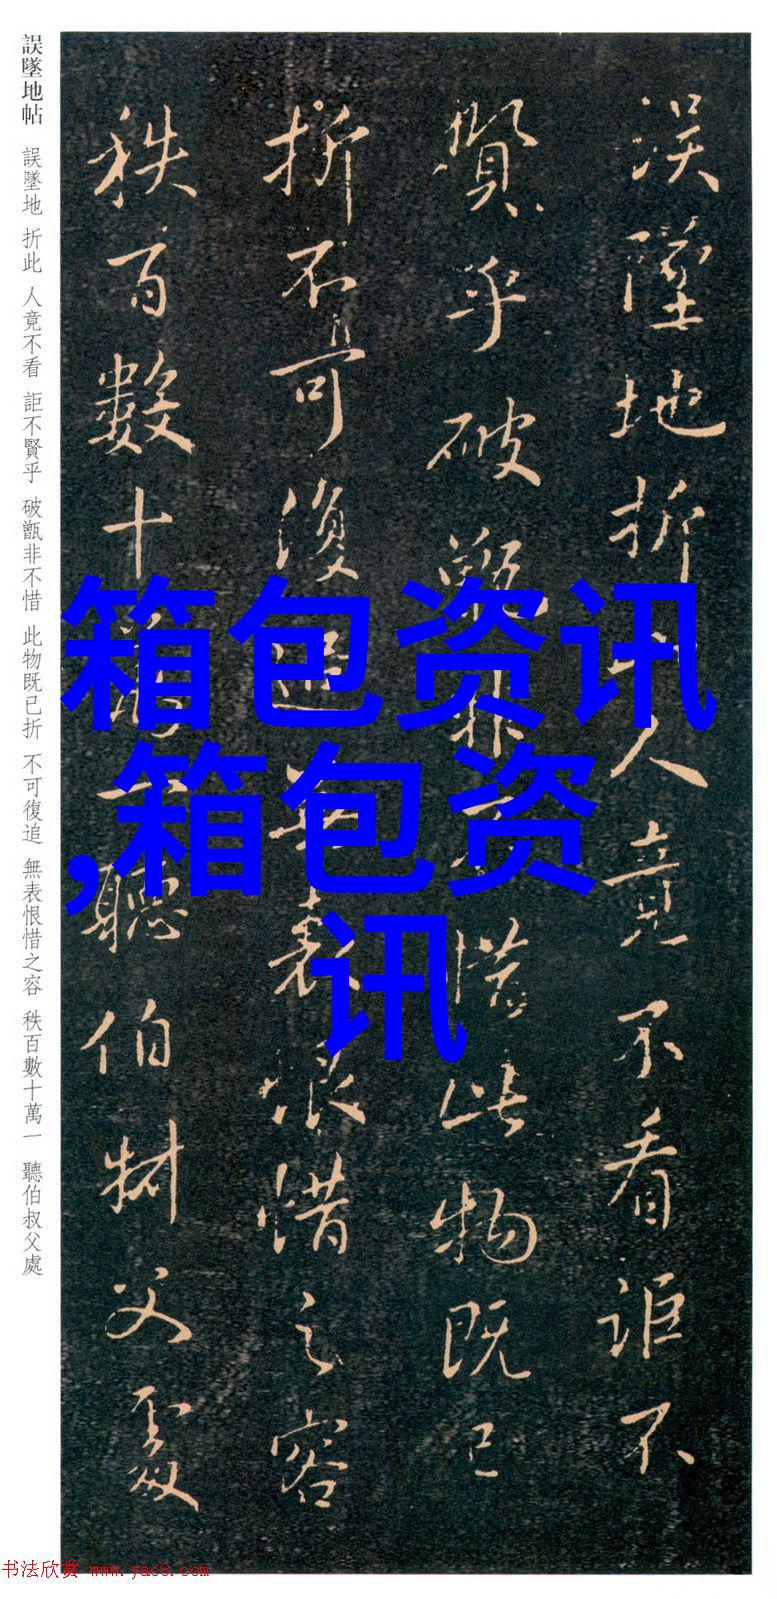 箱包资讯
,箱包资
讯
誤墜地折此人竟不看詎不
賢乎破甑非不惜此物既已
折不可復追無表恨惜之容
秩百數十萬一聽伯叔父處
誤墜地帖 誤墜地 折此 人竟不看 詎不賢乎 破甑非不惜 此物既已折 不可復追 無表恨惜之容 秩百數十萬一 聽伯叔父處
书法欣赏 www.yac8.com